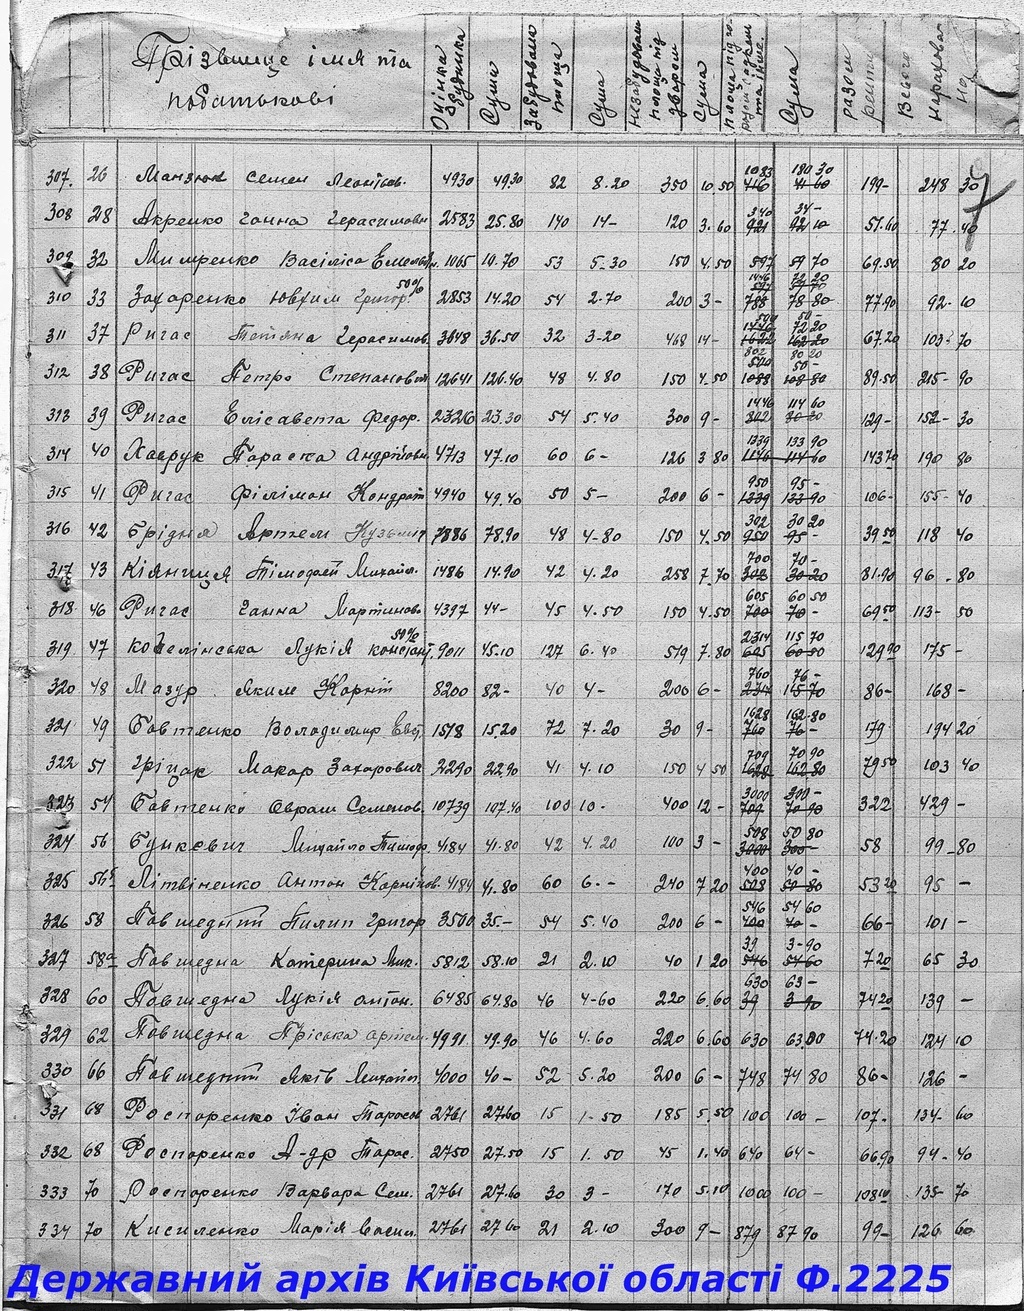 Прізвище імя та по батькові Оцінка будинка Сума Забудована площа Сума незабудована площа під двором Сума площа під садом та інше. Сума разом ренти Всього нарахован
307. 26 Манзюк Семен Леонтьєв. 4930 49.30 82 8.20 350 10 50 1083 180 30 199- 248 30
308 28 Якренко Ганна Герасимовн 2583 25.80 140 14- 120 3.60 340 34- 57.60 77.40
309 32 Васіліса Емельян. 1065 10.70 53 5.30 150 4.50 597 59 70 69.50 80 20
310 33 Захаренко Ювхим Григор. 50% 2853 14.20 54 2-70 200 3- 77.90 92-10
311 37 Ригас Тетяна Герасимов. 3648 36.50 32 3-20 468 14- 500 50- 67.20 103-70
312 38 Ригас Петро Степанович 12641 126.40 48 4.80 150 4.50 802 80 20 89.50 215-90
313 39 Ригас Елісавета Федор. 2326 23.30 54 5.40 300 9- 1146 114 60 129- 152-30
314 40 Хаврук Параска Андрійовн 4713 47.10 60 6- 126 3 80 1339 133 90 14370 190 80
315 41 Ригас Філімон Кондрат 4940 49.40 50 5- 200 6- 950 95- 106- 155-40
316 42 Брідня Артем Кузьмич 7886 78.90 48 4-80 150 4.50 302 30 20 39 50 118 40
317 43 Кіяниця Тімофей Михайл. 1486 14.90 42 4.20 258 7.70 700 70- 81.90 96-80
318 46 Ригас Ганна Мартинов. 4397 44- 45 4.50 150 4.50 605 60 50 69 50 113-50
319 47 Лукія констант. 50% 9011 45.10 127 6.40 519 7.80 2314 115 70 129 90 175-
320 48 Мазур Яким Корніт 8200 82- 40 4- 200 6- 760 76- 86- 168-
321 49 Бовтенко Володимир Евт. 1578 15.20 72 7.20 30 9- 1628 162.80 179 194 20
322 51 Гріцак Макар Захарович 2290 22.90 41 4.10 150 4 50 709 70 90 79 50 103 40
323 54 Бовтенко Овраам Семенов. 10739 107.40 100 10- 400 12- 3000 300- 322 429-
324 56 Бункевич Михайло Тимоф. 4184 41.80 42 4.20 100 3- 508 50 80 58 99-80
325 56б Літвіненко Антон Корніков. 4184 41.80 60 6.- 240 7 20 400 40- 53 20 95-
326 58 Повшедний Пилип Григор 3500 35.- 54 5.40 200 6- 546 54 60 66- 101-
327 58а Повшедна Катерина Мик. 5812 58.10 21 2.10 40 1 20 39 3-90 7 20 65 30
328 60 Повшедна Лукія Антон. 6485 64.80 46 4-60 220 6.60 630 63- 74 20 139-
329 62 Повшедна Пріська Артем. 4991 49.90 46 4.60 220 6.60 630 63.00 74.20 124 10
330 66 Повшедний Яків Михайл. 4000 40- 52 5.20 200 6- 748 74 80 86- 126-
331 68 Роспоренко Іван Тарасов 2761 27.60 15 1-50 185 5.50 100 100- 107- 134-60
332 68 Роспоренко А-др Тарас. 2750 27.50 15 1.50 45 1.40 640 64- 66.90 94-40
333 70 Роспоренко Варвара Сем. 2761 27.60 30 3- 170 5.10 1000 100- 108 10 135-70
334 70 Кисиленко Марія Васил. 2761 27 60 21 2.10 300 9- 879 87 90 99- 126 60
Державний архів Київської області Ф.2225